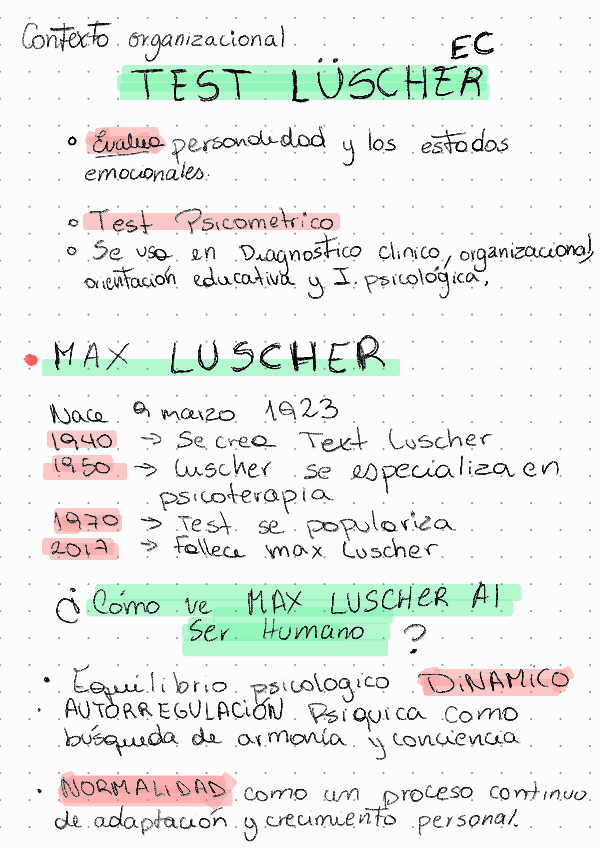 Contexto organizacional
EC
TEST LÜSCHER
Evalua personalidad y los estados
emocionales.
Test Psicometrico
Se usa en Diagnostico clinico, organizacional,
orientación educativa y I. psicológica.
MAX LUSCHER
Nace 9 marzo 1923
1940 -> Se crea Text Luscher
1950 -> Luscher se especializa en
psicoterapia
1970 -> Test se populariza
2017 -> Fallece max Luscher
¿Cómo ve MAX LUSCHER Al
Ser Humano ?
Equilibrio psicologico DiNAMiCO
AUTORREGULACIÓN Psiquica como
búsqueda de armonía y conciencia
NORMALIDAD como un proceso continuo
de adaptación y crecimiento personal.